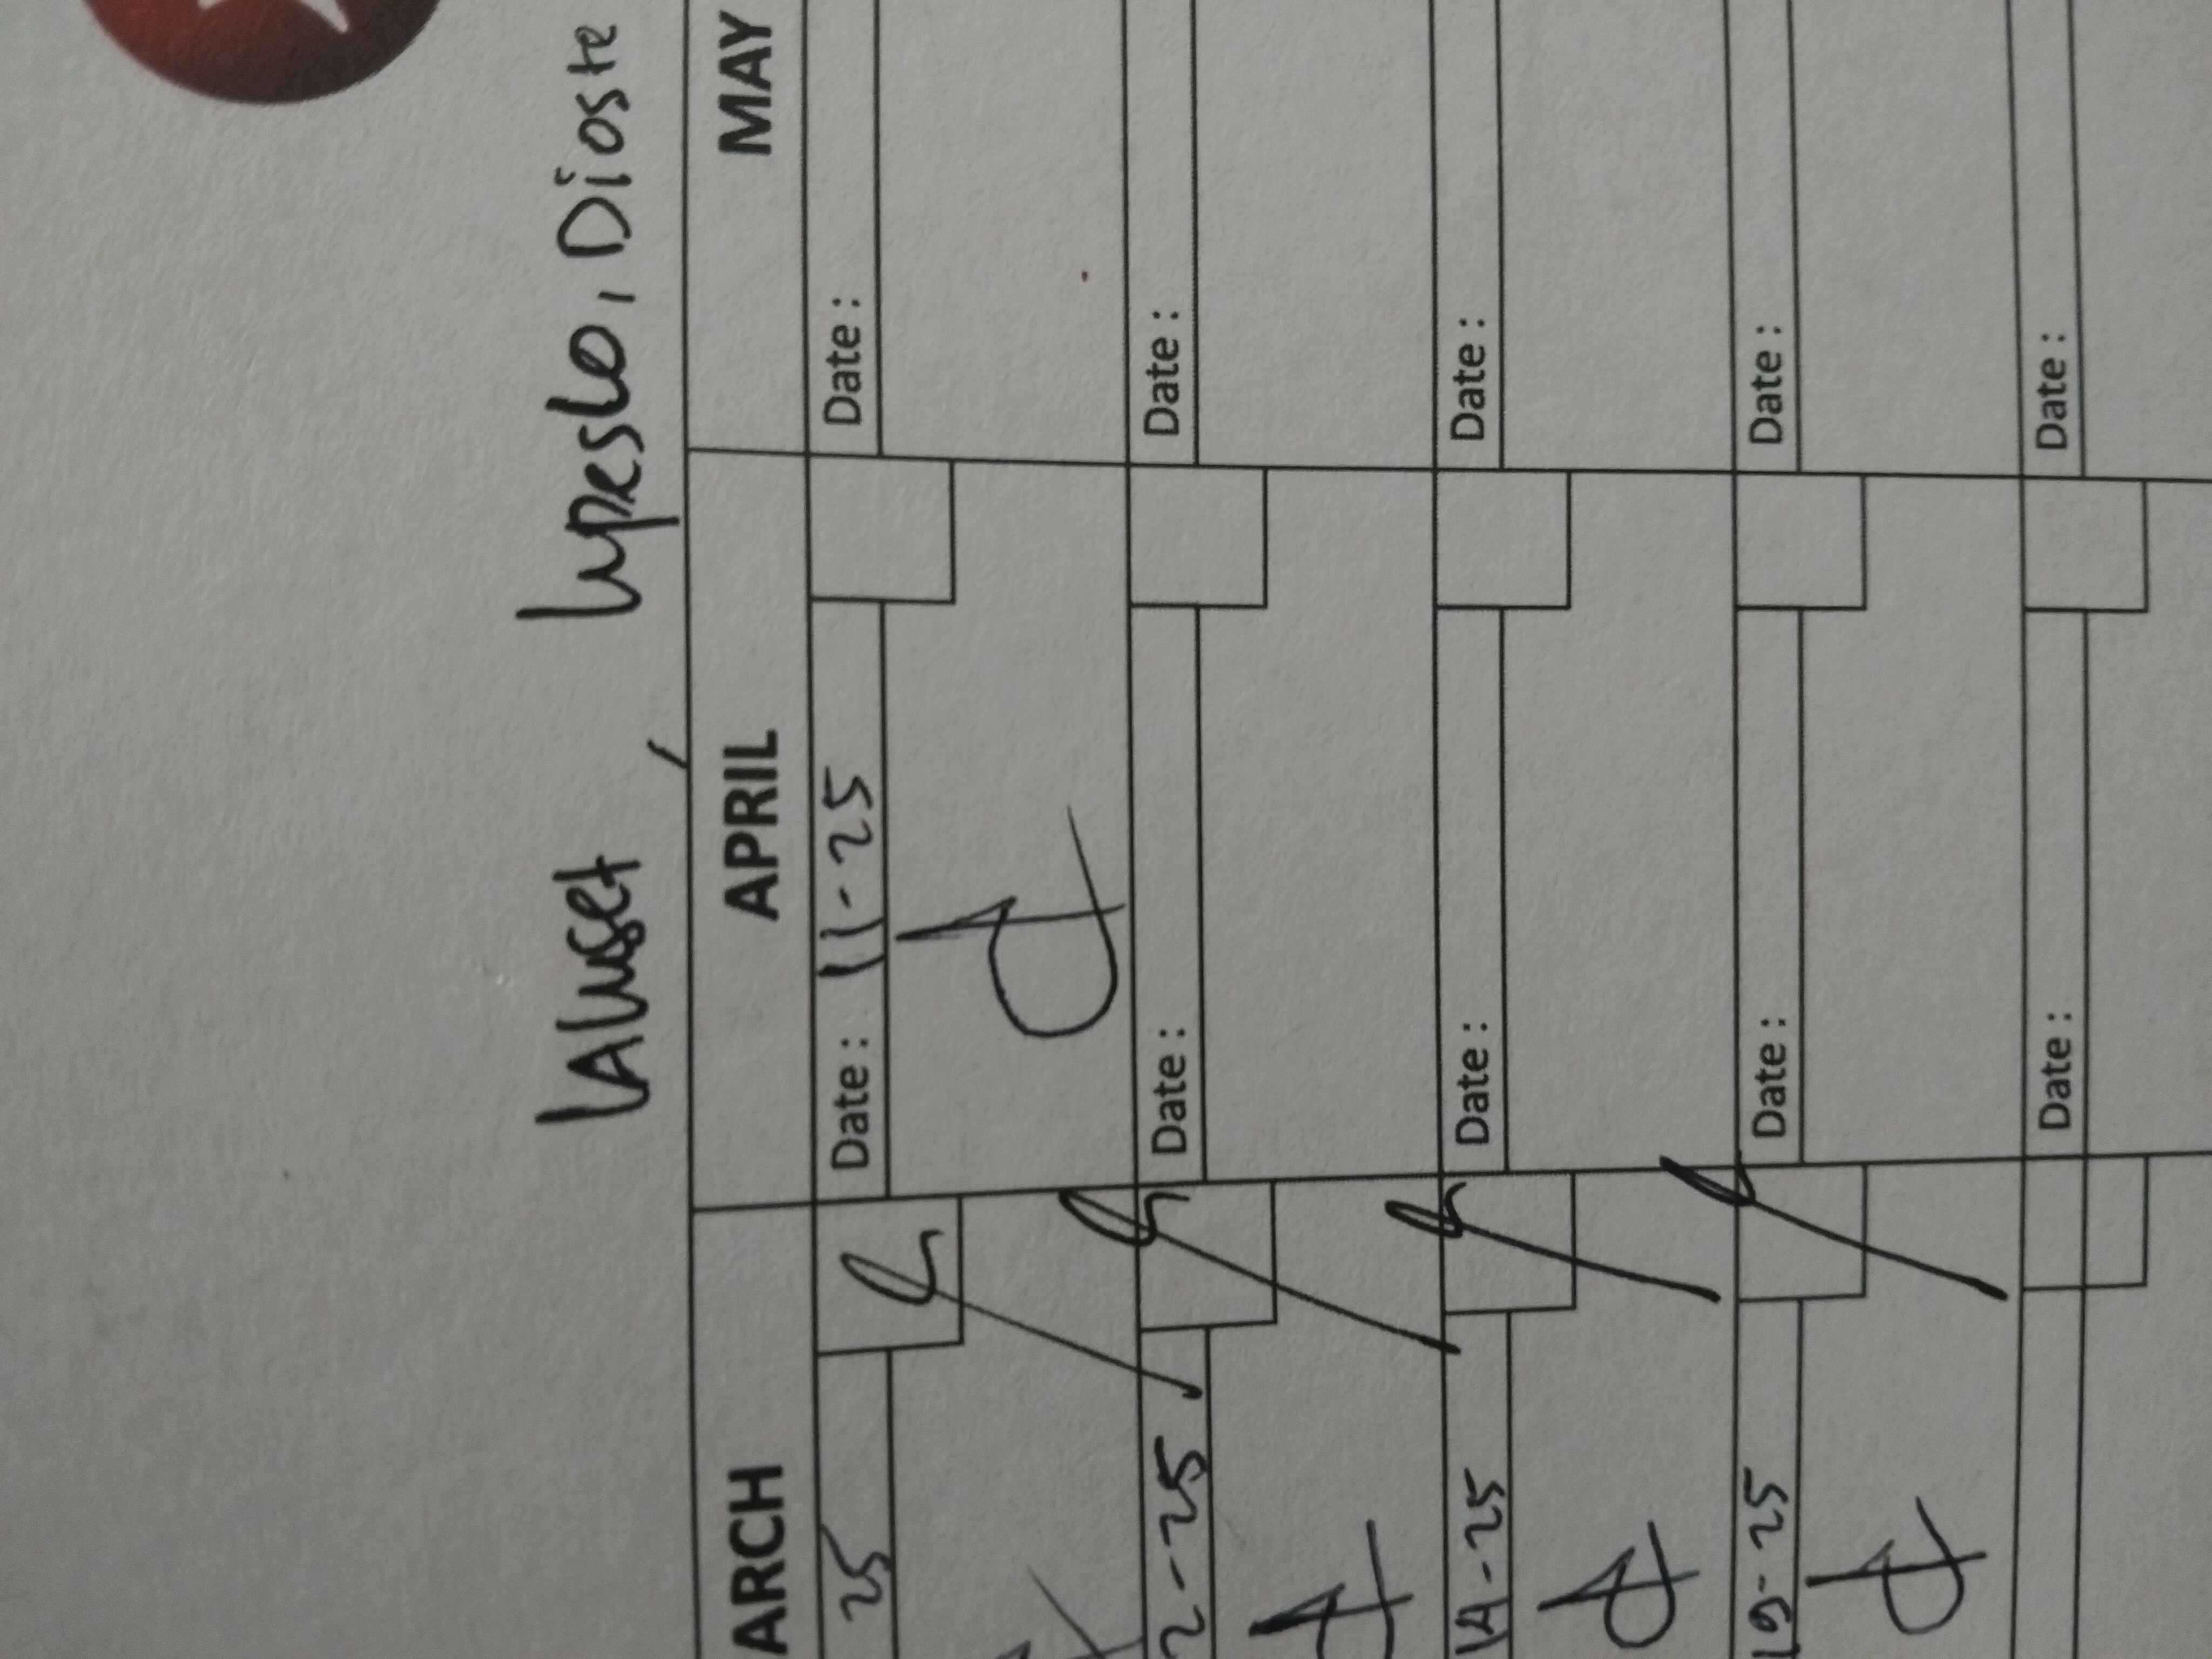 ARCH APRIL MAY
25 Date : 11-25 Date :
2-25 Date : Date :
14-25 Date : Date :
19-25 Date : Date :
Date : Date :